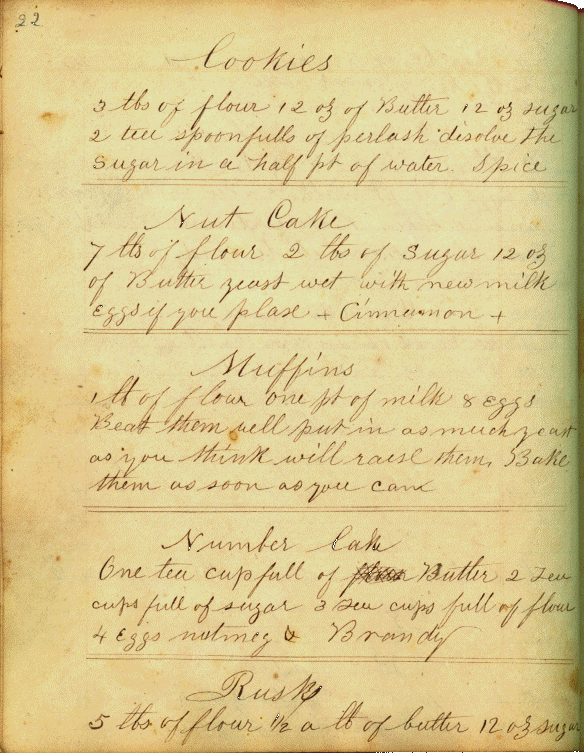 22
Cookies
3 lbs of flour 12 oz of Butter 12 oz sugar
2 tea spoonfulls of perlash disolve the
Sugar in a half pt of water. Spice
Nut Cake
7 lbs of flour 2 lbs of Sugar 12 oz
of Butter yeast wet with new milk
Eggs if you plase + Cinnamon +
Muffins
1 lb of flour one pt of milk 8 Eggs
Beat them well put in as much yeast
as you think will raise them, Bake
them as soon as you can
Number Cake
One tea cupfull of Butter 2 Tea
cups full of sugar 3 Tea cups full of flour
4 Eggs nutmeg & Brandy
Rusk
5 lbs of flour 1/2 a lb of butter 12 oz sugar